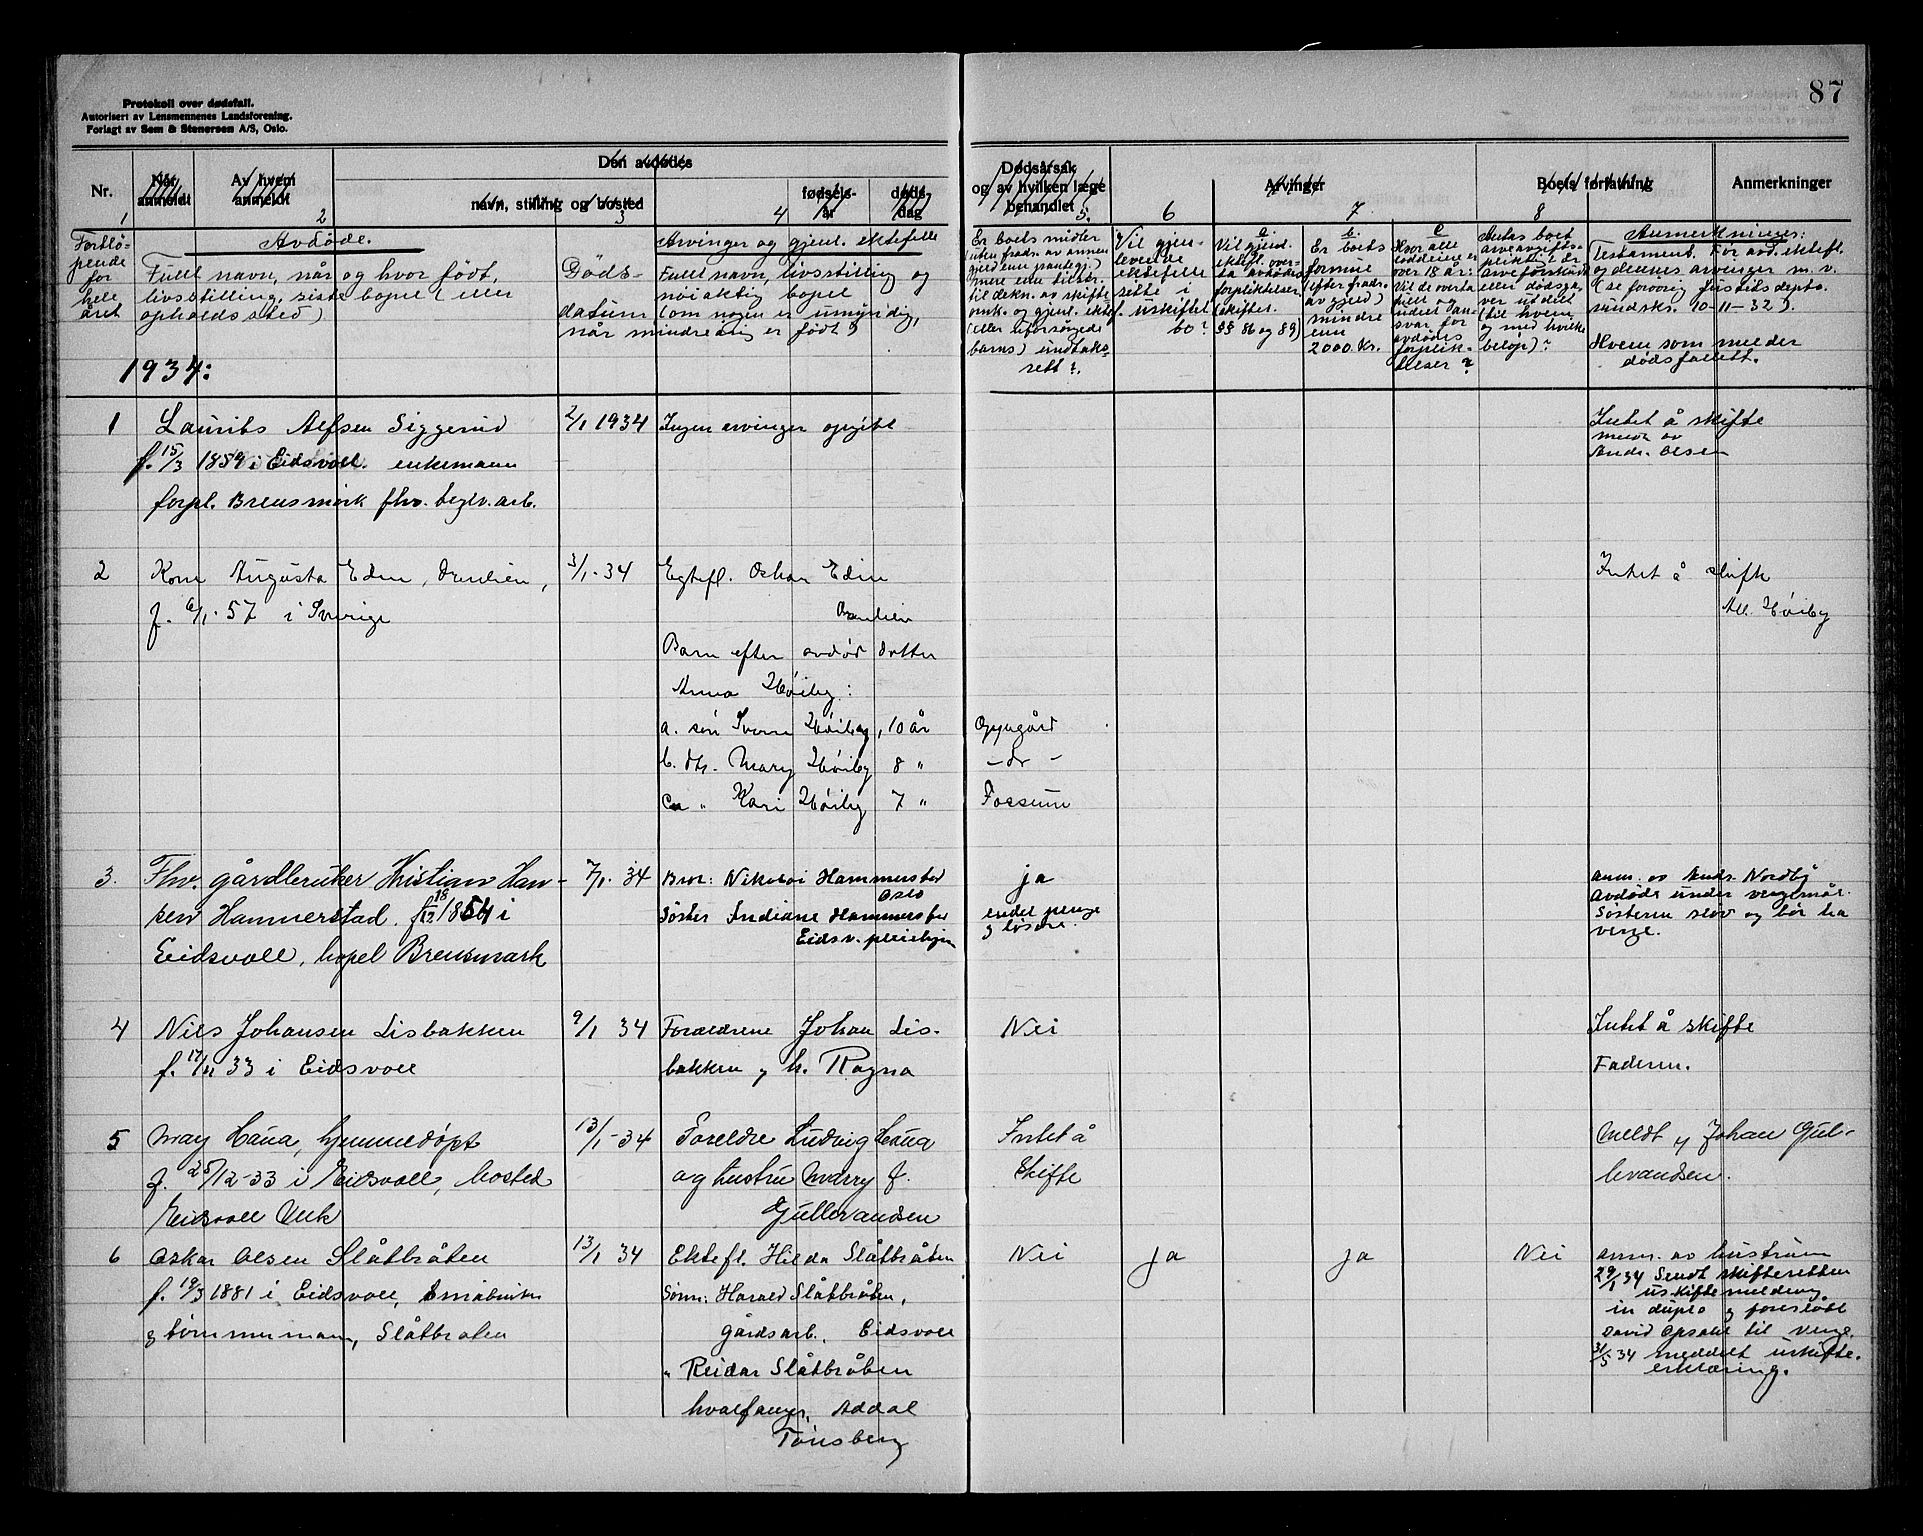 87
Protokoll over dødsfall.
Autorisert av Lensmennenes Landsforening.
Forlagt av Sem & Stenersen A/S, Oslo.
Nr.
Når anmeldt
Av hvem anmeldt
Den avdødes
navn, stilling og bosted
fødsels-
år
døds-
dag
Dødsårsak
og av hvilken læge
behandlet
Arvinger
Boets forfatning
Anmerkninger
1
2
3
4
5.
6
7
8
Fortlø-
pende
for
hele
året
Avdøde.
Fullt navn, når og hvor født,
livsstilling, siste bopel (eller
opholdssted)
Døds-
datum
Arvinger og gjenl. ektefelle
Fullt navn, livsstilling og
nøiaktig bopel
(om nogen er umyndig,
når mindreårig er født)
Er boets midler
til dekn. av skifte
omk. og gjenl. ektef.
(eller uforsørgede
barns) undtaks-
rett?
Vil gjen-
levende
ektefelle
sitte i
uskiftet
bo?
a.
Vil gjenl.
ektef. over-
ta avdødes
forpliktelser
(skiftel.
§§ 86 og 89)
b.
Er boets
formue
(efter fradr.
av gjeld)
mindre
enn
2000 Kr.
c
Hvor alle
loddeiere er
over 18 år:
Vil de overta
boet og
ansvar for
avdødes
forplik-
telser?
Antas boet
arveavgifts-
pliktig? Er
arveforskudd
eller dødsga-
ver utdelt
(til hvem,
og med hvilke
beløp)?
Anmerkninger:
Testament. For avd. ektef.
og dennes arvinger m.v.
(se forøvrig justisdepts.
rundskr. 10-11-32).
Hvem som melder
dødsfallet.
1934:
1
Laurits Alfsen Siggerud
f. 15/3 1859 i Eidsvoll. enkemann
forpl. Brensmork fhv. begrv. arb.
2/1 1934
Ingen arvinger opgitt
Intet å skifte
meldt av
Andr. Olsen
2
Kone Augusta Edin,
f. 6/1-57 i Sverige
3/1-34
Egtefl. Oskar Edin
Barn efter avdød dotter
Anna Høiby:
a. sön Svein Høiby, 10 år
Oppegård
b. dtr. Mary Høiby 8 "
- do -
c. " Kari Høiby 7 "
Fossum
Intet å skifte
Høiby
3.
Fhv. gårdbruker Kristian Han-
sen Hammerstad. f. 18/12 1854 i
Eidsvoll, bopel Brensmork
7/1-34
Bror: Nikolai Hammerstad
Oslo
Søster Indiane Hammerstad
Eidsv. pleiehjem
ja
endel penge
og løsøre.
anm. av Andr. Nordby
Avdøde under vergemål.
Søsteren sløv og bør ha
verge.
4
Nils Johansen Lisbakken
f. 17/11 33 i Eidsvoll
9/1 34
Foreldrene Johan Lis-
bakken og h. Ragna
Nei
Intet å skifte
Faderen.
5
May Haua, hjemmedöpt
f. 25/12-33 i Eidsvoll, bosted
Eidsvoll Verk
13/1-34
Foreldre Ludvig Haua
og hustru Marry f.
Gullevandsen
Intet å
Skifte
Meldt av Johan Gul-
levandsen.
6
Oskar Olsen Slåtbråten
f. 19/3 1881 i Eidsvoll, småbruker
og tømmermann, Slåtbråten
13/1 34
Ektefl. Hilda Slåtbråten
Sønn: Harald Slåtbråten,
gårdsarb., Eidsvoll
" Reidar Slåtbråten
hvalfanger, Addal
Tønsberg
Nei
ja
ja
Nei
anm. av hustruen
29/1 34 Sendt skifteretten
uskiftemelding
in duplo og foreslått
David Opsahl til verge.
31/5 34 meddelt uskifte-
erklæring.